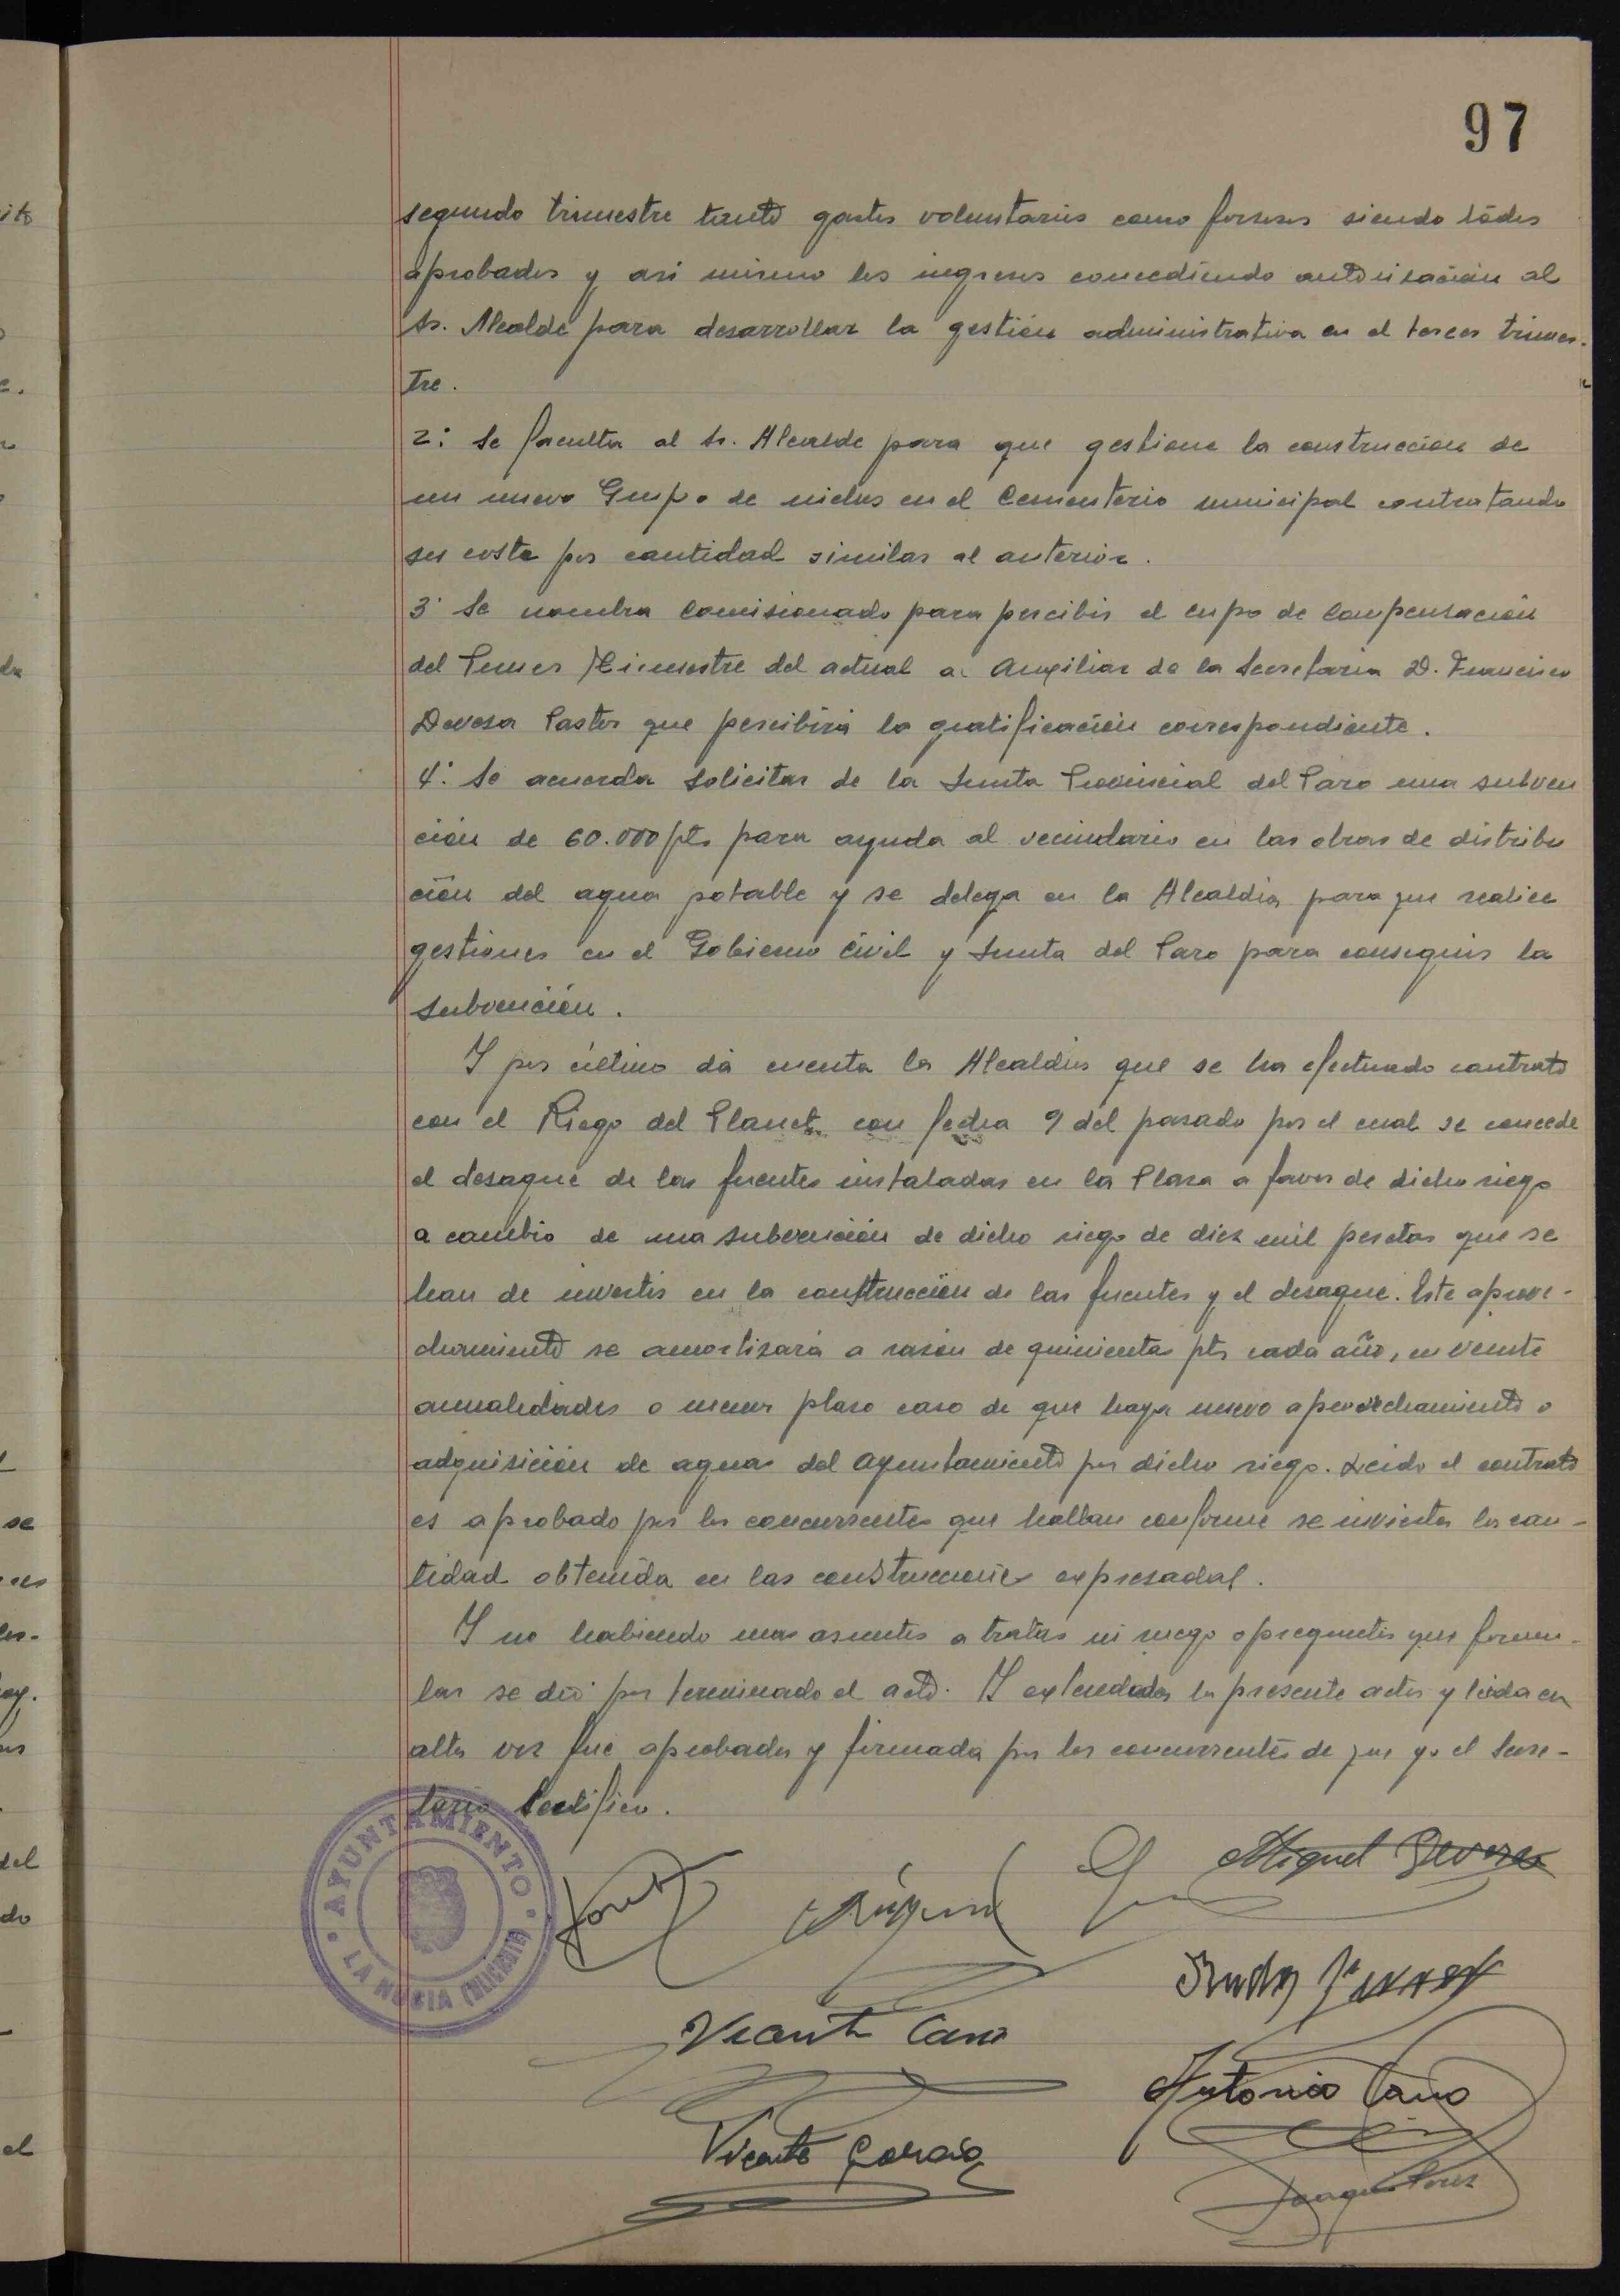 97
segundo trimestre tanto gastos voluntarios como forzosos siendo todos
aprobados y asi mismo los ingresos concediendo autorización al
Sr. Alcalde para desarrollar la gestión administrativa en el tercer trimes-
tre.
2º: Se faculta al Sr. Alcalde para que gestione la construcción de
un nuevo Grupo de nichos en el Cementerio municipal contratando
su coste por cantidad similar al anterior.
3º Se nombra Comisionado para percibir el cupo de Compensación
del Primer Trimestre del actual al Auxiliar de la Secretaria D. Francisco
Devesa Pastor que percibirá la gratificación correspondiente.
4º: Se acuerda solicitar de la Junta Provincial del Paro una subven
ción de 60.000 pts para ayuda al vecindario en las obras de distribu
ción del agua potable y se delega en la Alcaldia para que realice
gestiones en el Gobierno Civil y Junta del Paro para conseguir la
subvención.
Y por último dá cuenta la Alcaldia que se ha efectuado contrato
con el Riego del Planet con fecha 9 del pasado por el cual se concede
el desagüe de las fuentes instaladas en la Plaza a favor de dicho riego
a cambio de una subvención de dicho riego de diez mil pesetas que se
han de invertir en la construcción de las fuentes y el desagüe. Este aprove-
chamiento se amortizará a razón de quinientas pts cada año, en veinte
anualidades o menor plazo caso de que haya nuevo aprovechamiento o
adquisición de aguas del Ayuntamiento por dicho riego. Leido el contrato
es aprobado por los concurrentes que hallan conforme se invierta la can-
tidad obtenida en las construcciones expresadas.
Y no habiendo mas asuntos a tratar ni ruegos o preguntas que formu-
lar se dió por terminado el acto. Y extendida la presente acta y leida en
alta voz fue aprobada y firmada por los concurrentes de que yo el Secre-
tario Certifico.
AYUNTAMIENTO
LA NUCIA (ALICANTE)
Miguel Devesa
Vicente Cano
Antonio Cano
Vicente Garcia